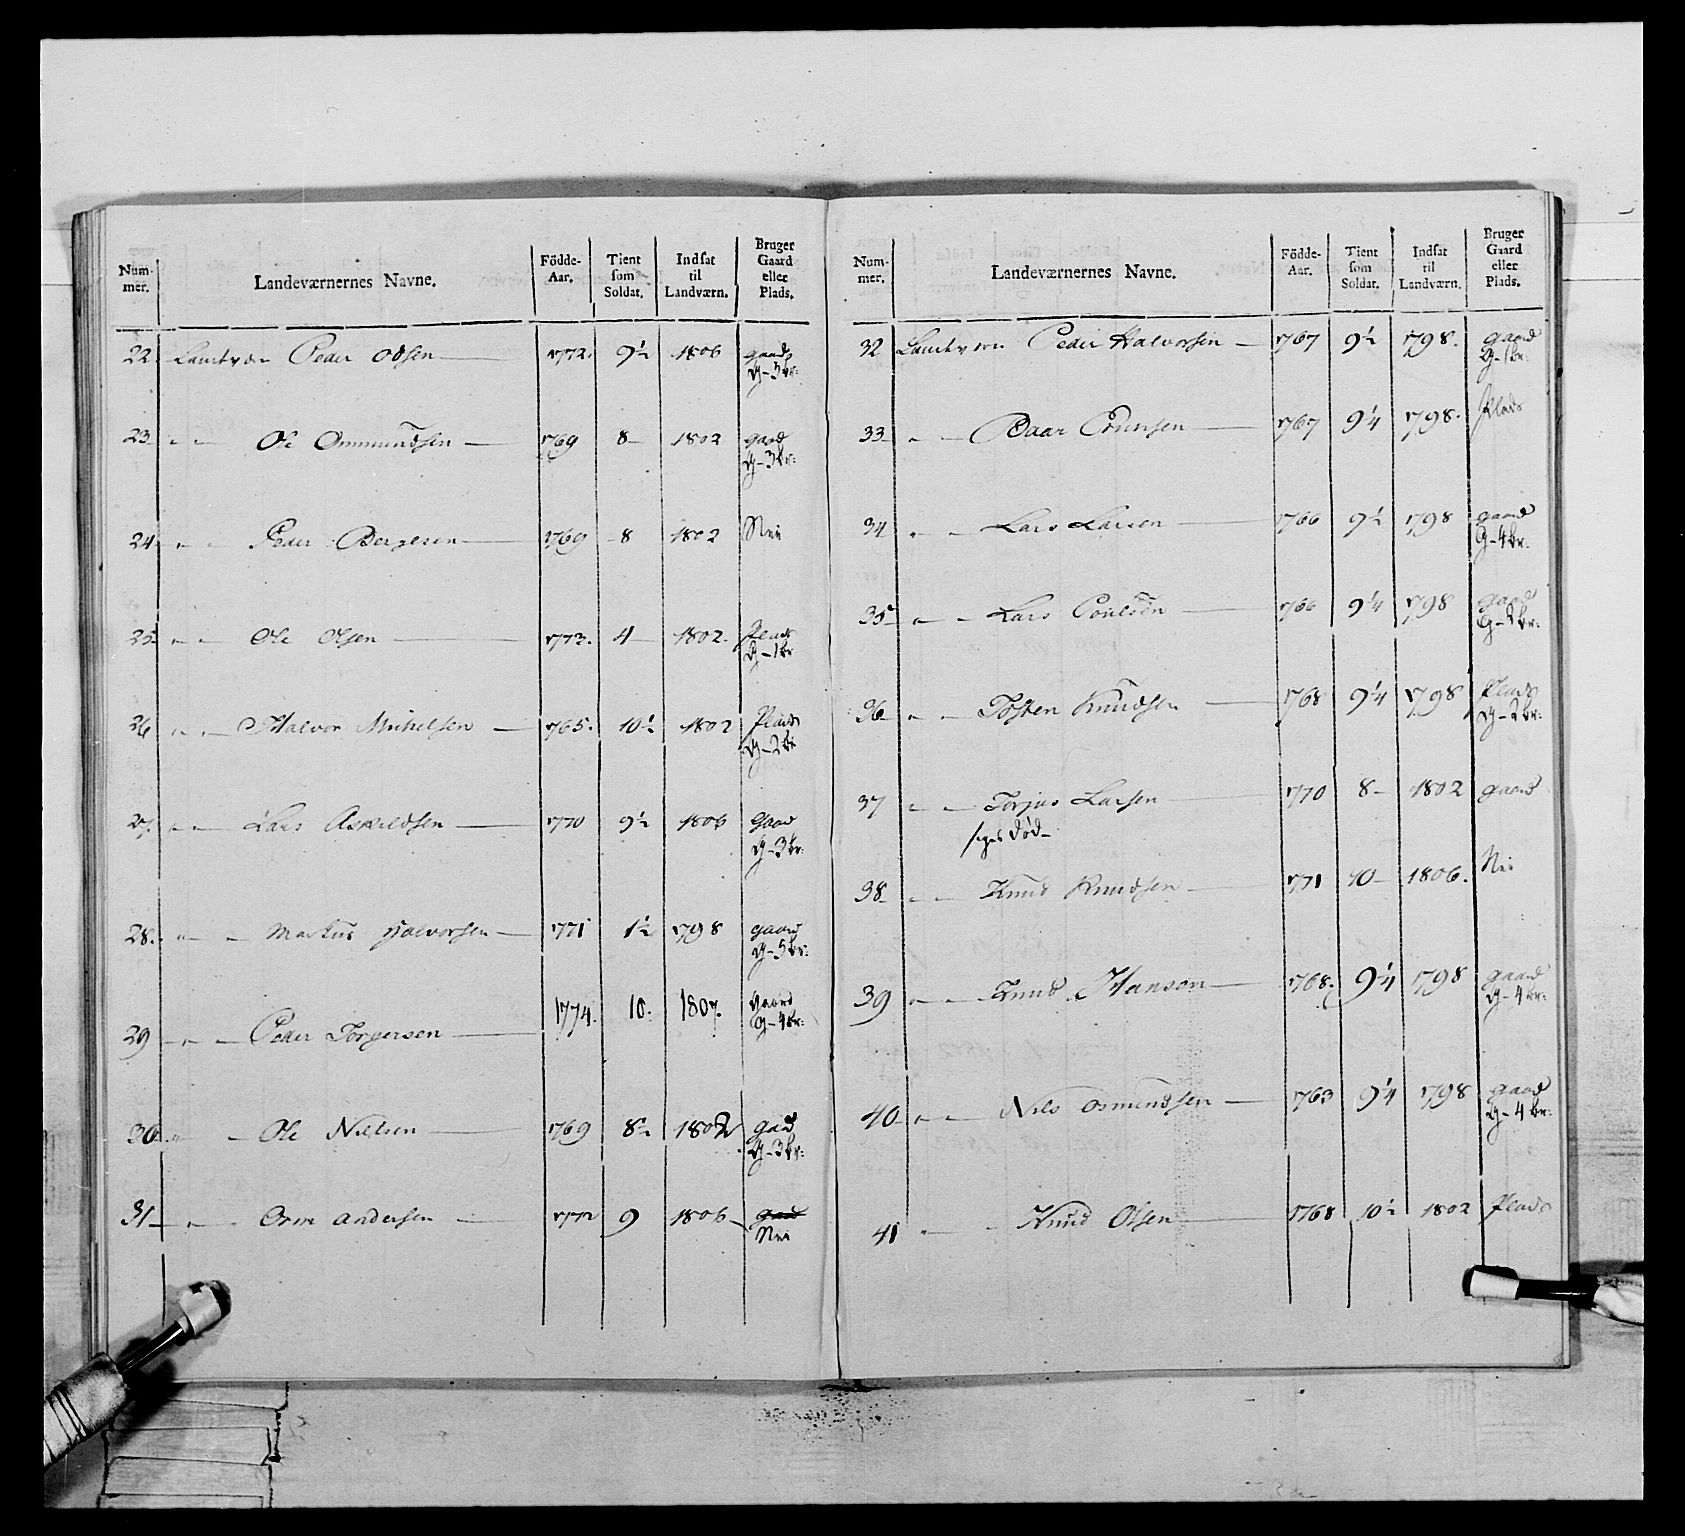 Num- mer. Landeværnernes Navne. Födde- Aar. Tient som Soldat. Indsat til Landværn. Bruger Gaard eller Plads.
22. Landværn Peder Odsen 1772. 9½ 1806 gaard
G- 3 br:
23 " " Ole Ommundsen 1769 8 1802 gaard
G- 3 br:
24 " " Peder Bergesen 1769 8 1802 Nei
25 " " Ole Olsen 1773. 4 1802. Plads
G- 1 br
26 " " Halvor Michelsen 1765. 10½ 1802 Plads
G- 2 br
27. " " Lars Askildsen 1770 9½ 1806 Gaard
G- 3 br:
28. " " Markus Halvorsen 1771 1½ 1798 gaard
G- 5 br:
29 " " Peder Torgersen 1774. 10. 1807. Gaard
G- 4 br:
30 " " Ole Nielsen 1769 8½ 1802 gaard
G- 3 br:
31 " Orm Andersen 1772 9 1806 gaard
Nei
Num- mer. Landeværnernes Navne. Födde- Aar. Tient som Soldat. Indsat til Landværn. Bruger Gaard eller Plads.
32 Landværn Peder Halvorsen 1767 9½ 1798. gaard
G- 1 br:
33 " Baar 1767 9¼ 1798. Plads
34 " Lars Larsen 1766 9½ 1798 gaard
G- 4 br:
35 " Lars Poulsen 1766 9¼ 1798 gaard
G- 2 br:
36 " Tosten Knudsen 1768 9¼ 1798 Plads
G- 2 br:
37 " Torjus Larsen 1770 8 1802 gaard
siges død
38 " " Knud Knudsen 1771 10 1806. Nei
39 " Knud Hansen 1768. 9¼ 1798 gaard
G- 4 br:
40 " Nils Osmundsen 1763 9¼ 1798 gaard
G- 4 br:
41 " Knud Olsen 1768 10½ 1802 Plads